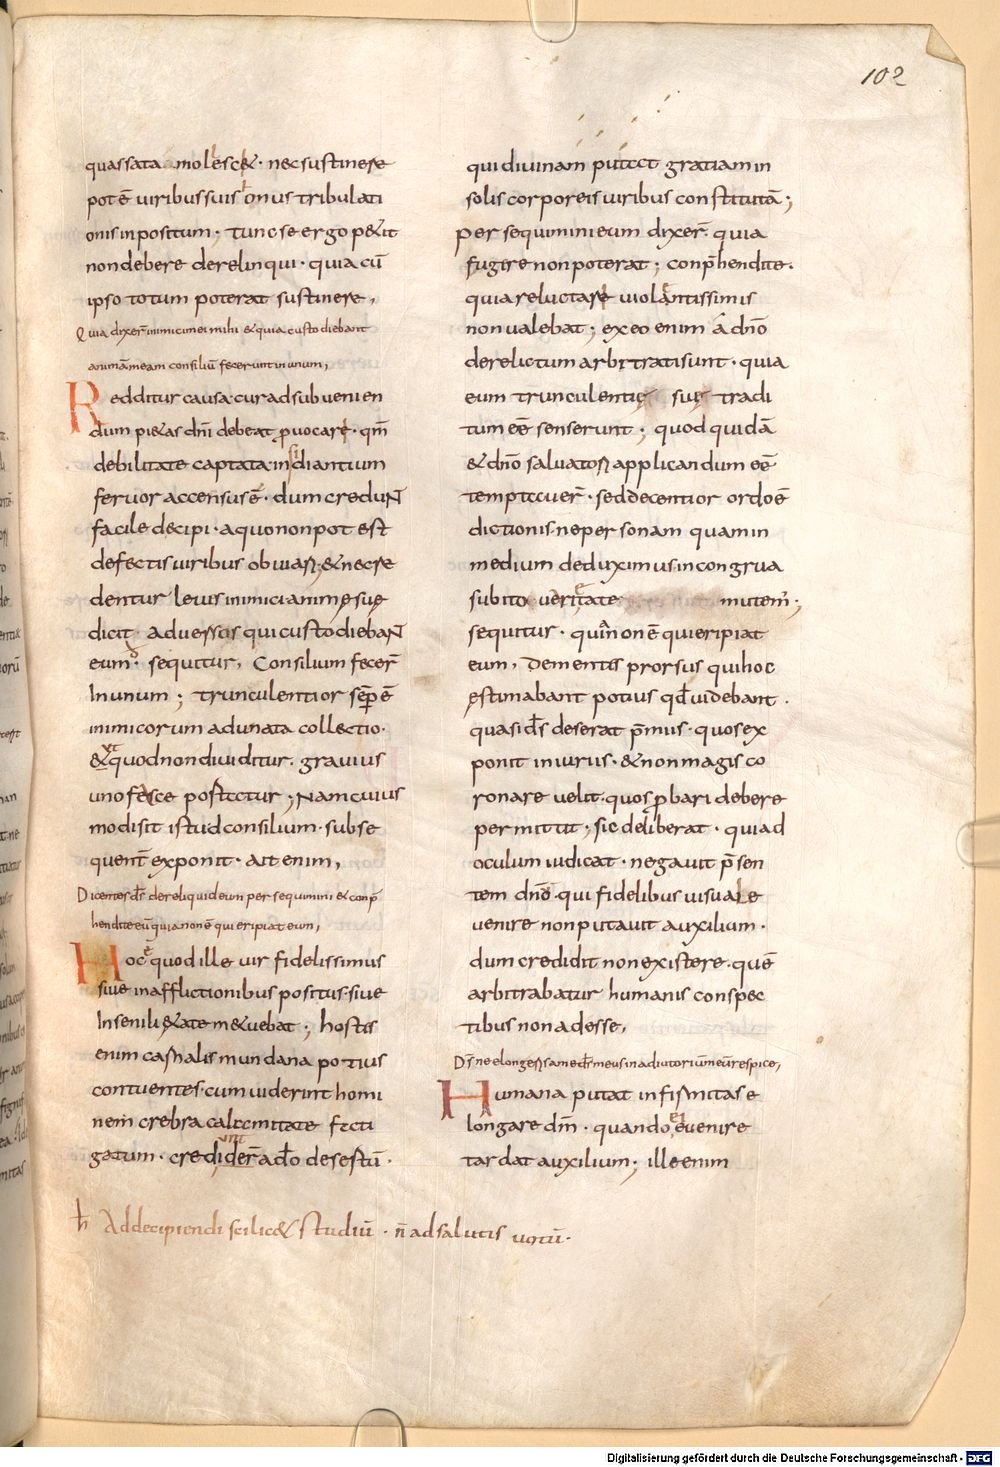 102
quassata molesc&· nec sustinere
potē uiribus suis onus tribulati
onis inpositum · tunc se ergo p&it
non debere derelinqui · quia cū
ipso totum poterat sustinere,
Quia dixer̄ inimici mei mihi & qui a custodiebant
animā meam consiliū fecerunt in unum,
Redditur causa cur ad subuenien
dum pi&as dn̄i debeat ꝓuocari · qm̄
debilitate captata insidiantium
feruor accensus ē · dum creduNT
facile decipi · a quo non potest
defectis uiribus obuiari; & ne cre
dentur leuis inimici animę suę
dicit · aduersus qui custodiebaNT
eum · sequitur, Consilium fecer̄
In unum ; trunculentior sēp ē
inimicorum adunata collectio ·
& quod non diuiditur · grauius
uno fasce portatur ; Nam cuius
modi sit istud consilium · subse
quent̄ exponit · ait enim,
Dicentes d̄s dereliquid eum persequimini & conp̄
hendite eū quia non ē qui eripiat eum,
Hoc quod ille uir fidelissimus
siue in afflictionibus positus · siue
In senili &ate m&uebat ; hostes
enim carnalis mundana potius
contuentes · cum uiderint homi
nem crebra calamitate fati
gatum · crediderr̄ a do desertū ·
Ad decipiendi scilic& studiū · n̄ ad salutis uotū ·
qui diuinam putat gratiam in
solis corporeis uiribus constitutā ;
persequimini eum dixer̄ · quia
fugire non poterat ; conp̄hendite ·
quia reluctare uiolantissimis
non ualebat ; ex eo enim a dn̄o
derelictum arbitrati sunt · quia
eum trunculentię suę tradi
tum eē senserunt ; quod quidā
& dn̄o saluatori applicandum eē
temptauer̄ · sed decentior ordo ē
dictionis · ne personam quam in
medium deduximus incongrua
subito ueritate mutem̄ ;
sequitur · quia non ē qui eripiat
eum, Dementes prorsus qui hoc
ęstimabant potius qd̄ uidebant ·
quasi d̄s deserat p̄mus · quos ex
ponit iniuriis · & non magis co
ronare uelit · quos ꝓbari debere
permittit ; sic deliberat · qui ad
oculum iudicat · negauit p̄sen
tem dn̄o · qui fidelibus uisuale
uenire non putauit auxilium ·
dum credidit non existere · quē
arbitrabatur humanis conspec
tibus non adesse,
D̄s ne elongeris a me d̄s meus in adiutorium meū respice,
Humana putat infirmitas e
longare dm̄ · quando ei euenire
tardat auxilium; ille enim
Digitalisierung gefördert durch die Deutsche Forschungsgemeinschaft · DFG